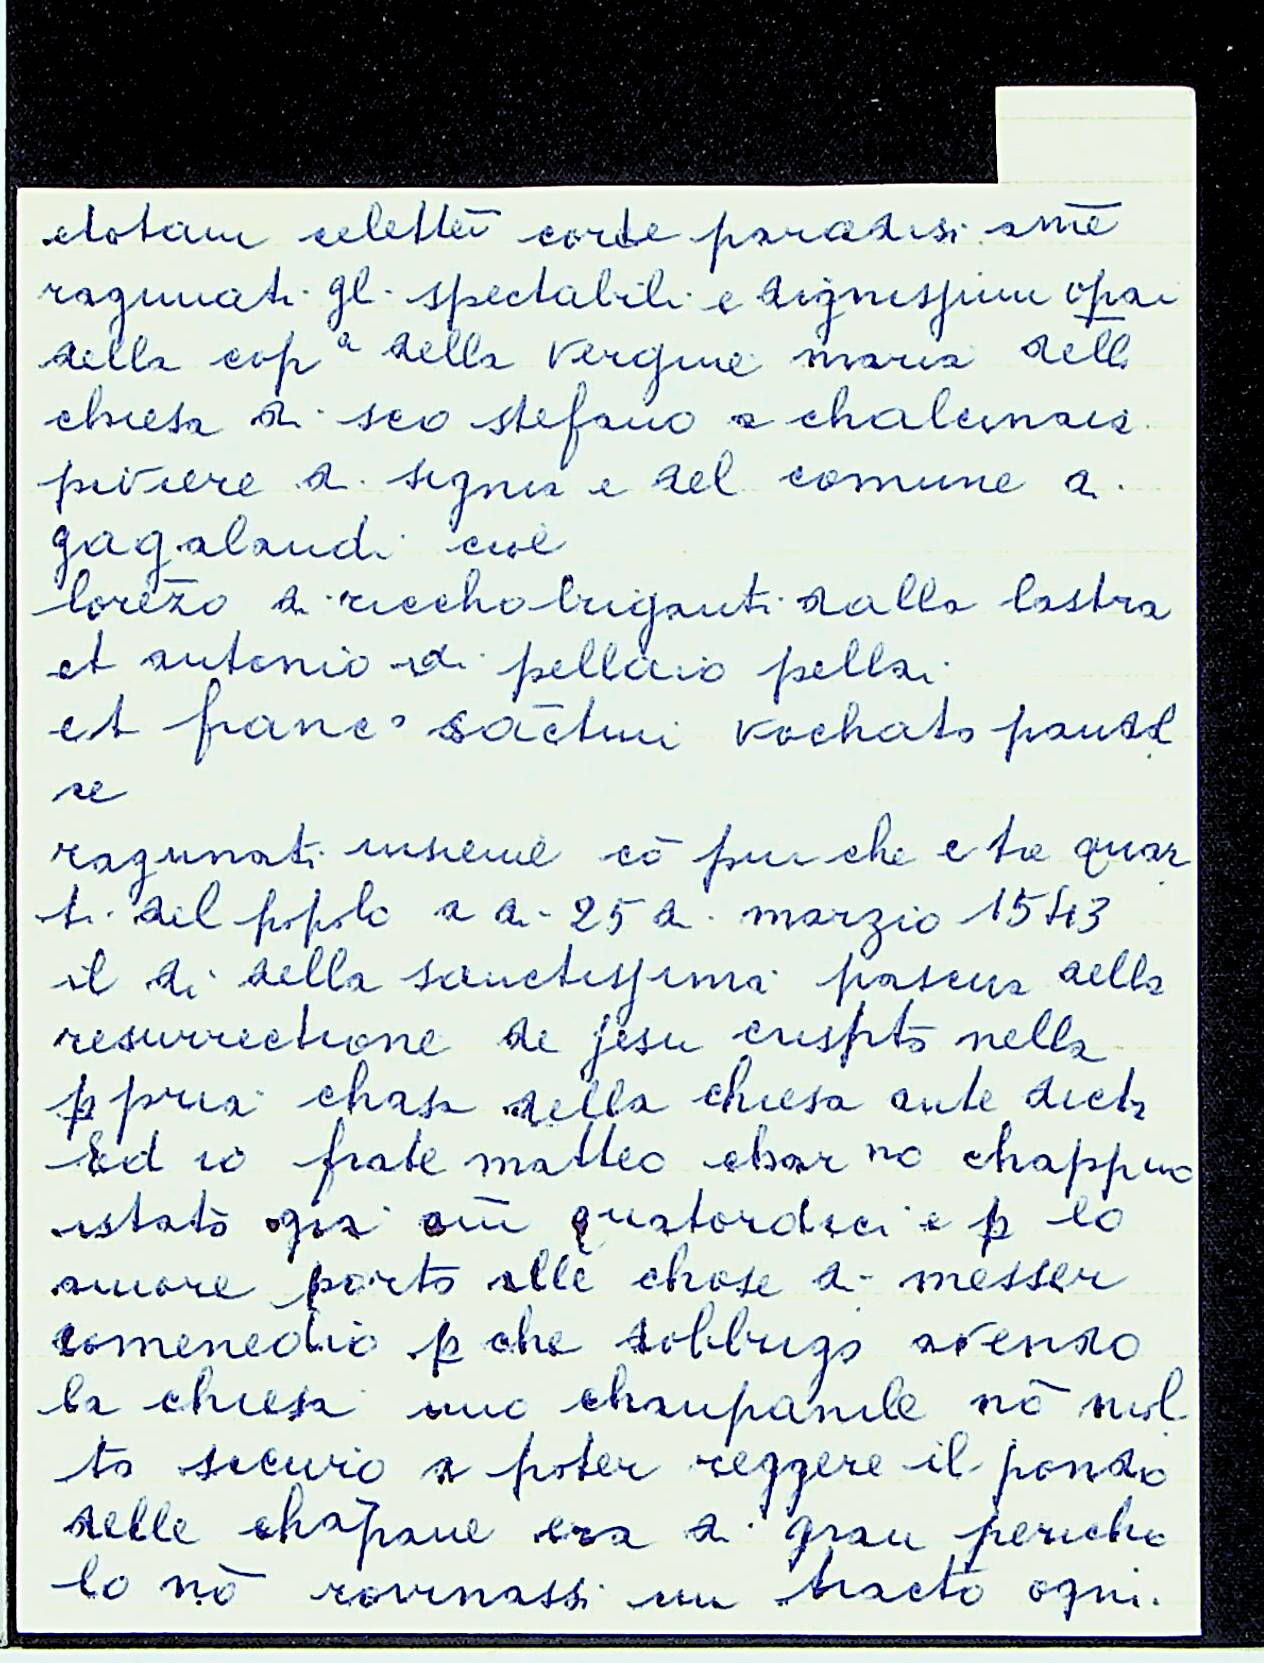 etotam celestē corte paradisi amē
ragunati gl spectabili e dignissimi opai
della copª della Vergine maria dell
chiesa di sco stefano a chalcinaia
piviere di signia e del comune di
gagalandi cioè
lorēzo di riccho briganti dalla lastra
et antonio di pellaio pellai
et francº sāctini vochato pautl
re
ragunati insieme cō piu che e tre quar
ti del popolo a di 25 di marzio 1543
il di della sanctissima pascua della
resurrectione de jesu crispto nella
ppria chasa della chiesa ante dicta
Ed io frate matteo char no chappino
istato gia āni quatordeci e p lo
amore porto alle chose di messer
domenedio p che sobbrigo avendo
la chiesa uno champanile nō mol
to securio a poter reggere il pondo
delle chāpane era di gran pericho
lo nō rovinassi un tracto ogni